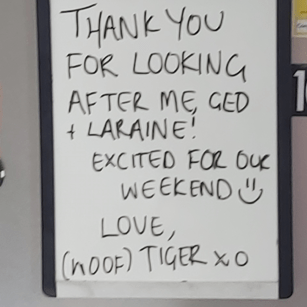 THANK YOU
FOR LOOKING
AFTER ME, GED
+ LARAINE!
EXCITED FOR OUR
WEEKEND
LOVE,
(WOOF) TIGER XO